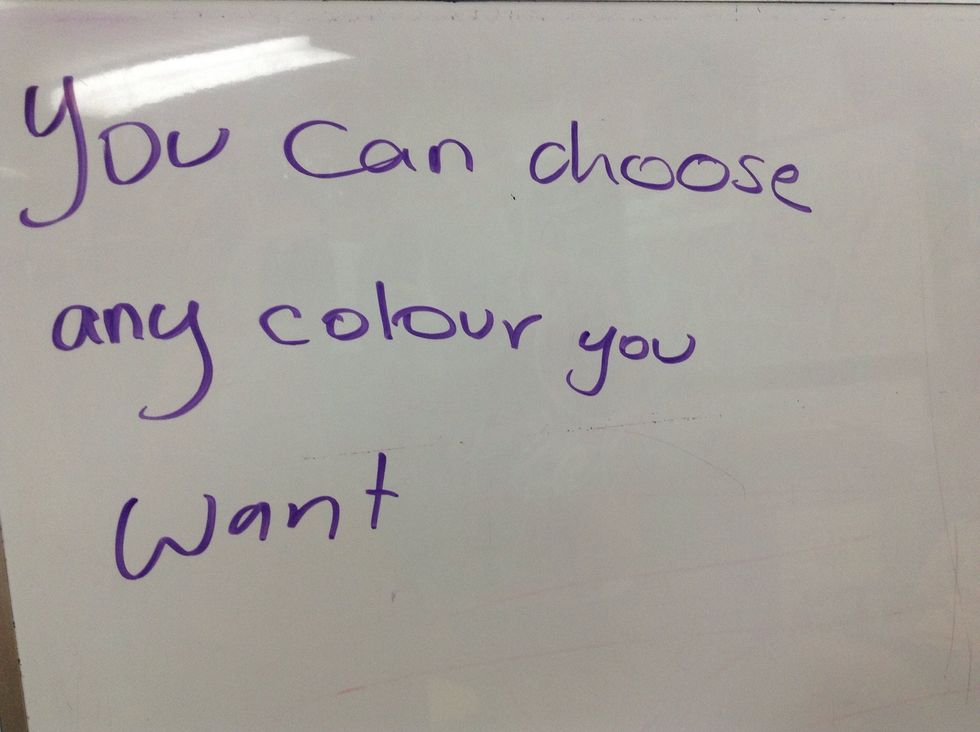 You can choose
any colour you
want